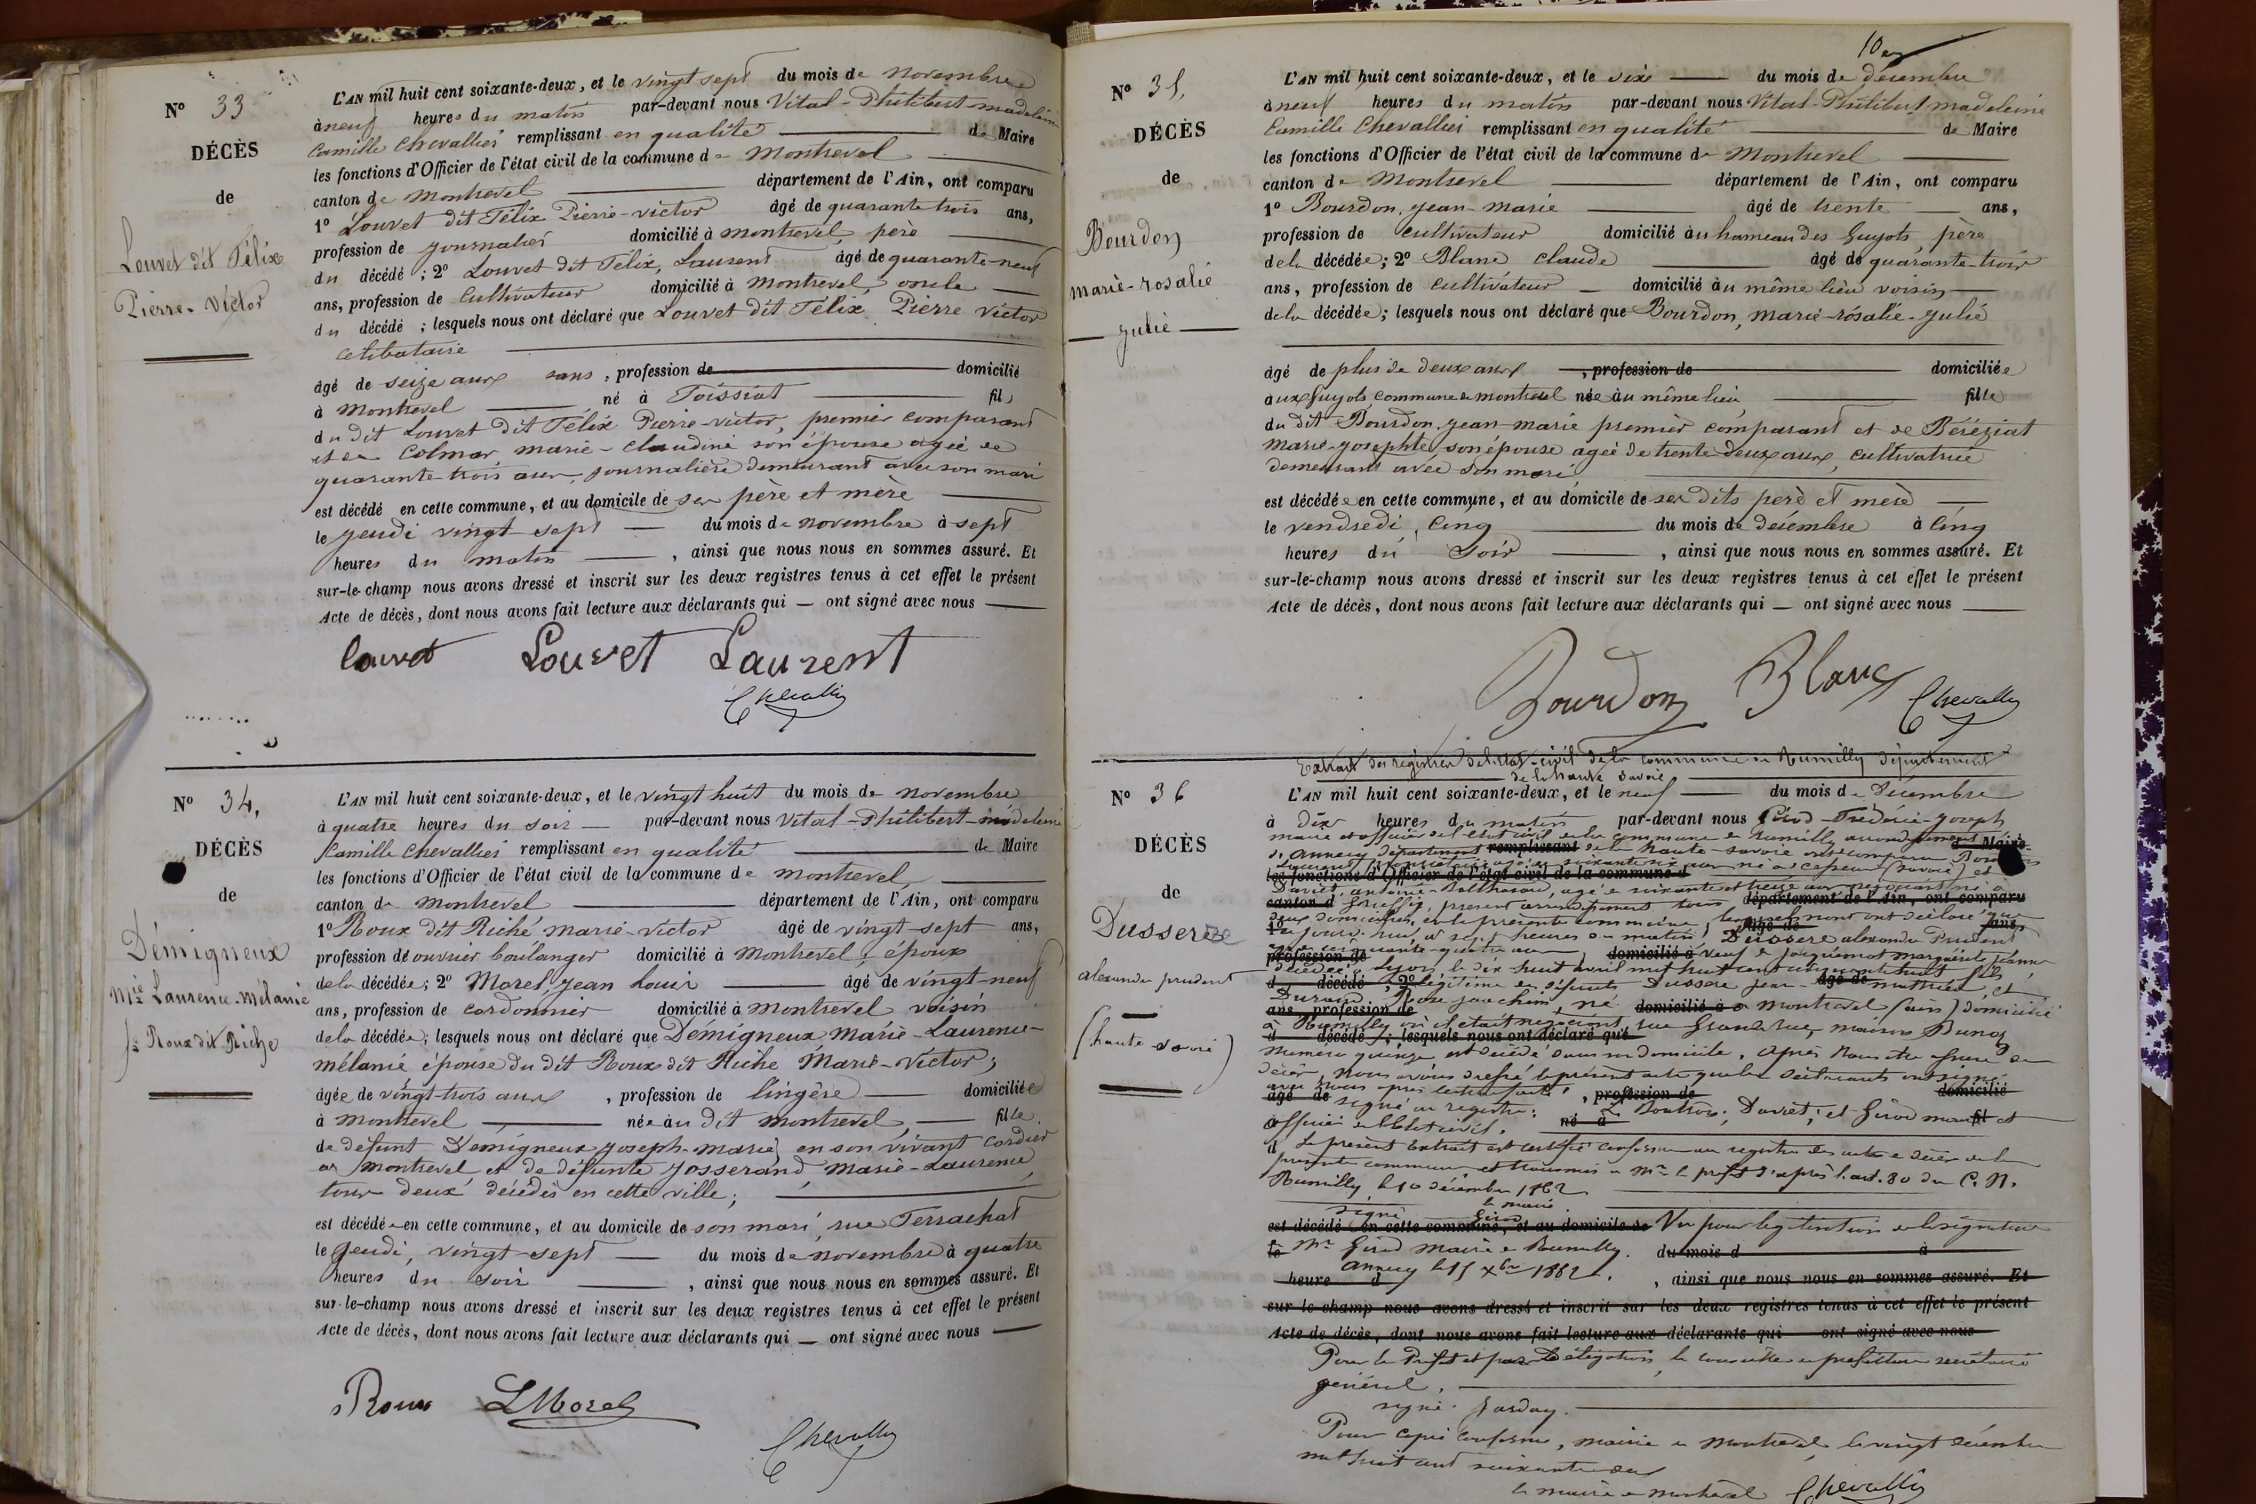 N° 33
DÉCÈS
de
Louvet dit Félix
Pierre-Victor
L'AN mil huit cent soixante-deux, et le vingt sept du mois de novembre
à neuf heures du matin par-devant nous Vital-Philibert-madeleine
Camille Chevallier remplissant en qualité de Maire
les fonctions d'Officier de l'état civil de la commune de Montrevel
canton de Montrevel département de l'Ain, ont comparu
1° Louvet dit Félix Pierre-victor âgé de quarante trois ans,
profession de journalier domicilié à montrevel, père
du décédé ; 2° Louvet dit Félix, Laurent âgé de quarante-neuf
ans, profession de Cultivateur domicilié à Montrevel, oncle
du décédé ; lesquels nous ont déclaré que Louvet dit Félix Pierre Victor
célibataire
âgé de seize ans sans , profession de domicilié
à Montrevel né à Foissiat fils
du dit Louvet dit Félix Pierre-victor, premier comparant
et de Colmar marie-claudine son épouse agée de
quarante-trois ans, journalière demeurant avec son mari
est décédé en cette commune, et au domicile de ses père et mère
le jeudi vingt sept du mois de novembre à sept
heures du matin , ainsi que nous nous en sommes assuré. Et
sur-le-champ nous avons dressé et inscrit sur les deux registres tenus à cet effet le présent
Acte de décès, dont nous avons fait lecture aux déclarants qui — ont signé avec nous
Louvet Louvet Laurent
Chevallier
N° 34,
DÉCÈS
de
Démigneux
Mie Laurence-Mélanie
fe Roux dit Riche
L'AN mil huit cent soixante-deux, et le vingt huit du mois de novembre
à quatre heures du soir par-devant nous Vital-Philibert-madeleine
Camille Chevallier remplissant en qualité de Maire
les fonctions d'Officier de l'état civil de la commune de montrevel,
canton de Montrevel département de l'Ain, ont comparu
1° Roux dit Riche marie-victor âgé de vingt-sept ans,
profession de ouvrier boulanger domicilié à Montrevel, époux
de la décédée; 2° Morel, jean louis âgé de vingt-neuf
ans, profession de cordonnier domicilié à montrevel voisin
de la décédée; lesquels nous ont déclaré que Démigneux, Marie-Laurence-
mélanie épouse du dit Roux dit Riche Marie-Victor;
âgée de vingt-trois ans , profession de lingère domiciliée
à montrevel née au dit montrevel, fille
de défunt Démigneux joseph-marie, en son vivant cordier
à montrevel et de défunte josserand, marie-Laurence
tous deux décédés en cette ville;
est décédée en cette commune, et au domicile de son mari, rue Terrachat
le jeudi, vingt-sept du mois de novembre à quatre
heures du soir , ainsi que nous nous en sommes assuré. Et
sur-le-champ nous avons dressé et inscrit sur les deux registres tenus à cet effet le présent
Acte de décès, dont nous avons fait lecture aux déclarants qui — ont signé avec nous
Roux LMorel
Chevallier
10e
N° 35,
DÉCÈS
de
Bourdon
marie-rosalie
julie
L'AN mil huit cent soixante-deux, et le six du mois de décembre
à neuf heures du matin par-devant nous Vital-Philibert madeleine
Camille Chevallier remplissant en qualité de Maire
les fonctions d'Officier de l'état civil de la commune de Montrevel
canton de Montrevel département de l'Ain, ont comparu
1° Bourdon, jean-marie âgé de trente ans,
profession de cultivateur domicilié au hameau des Guyots, père
de la décédée; 2° Blanc claude âgé de quarante-trois
ans, profession de cultivateur domicilié au même lieu voisin
de la décédée; lesquels nous ont déclaré que Bourdon, marie-rosalie-julie
âgé de plus de deux ans , profession de domiciliée
aux Guyots commune de montrevel née au même lieu fille
du dit Bourdon jean-marie premier comparant et de Béréziat
marie-josephte son épouse agée de trente deux ans, cultivatrice
demeurant avec son mari
est décédée en cette commune, et au domicile de ses dits père et mère
le vendredi, cinq du mois de décembre à cinq
heures du soir , ainsi que nous nous en sommes assuré. Et
sur-le-champ nous avons dressé et inscrit sur les deux registres tenus à cet effet le présent
Acte de décès, dont nous avons fait lecture aux déclarants qui — ont signé avec nous
Bourdon Blanc Chevallier
Extrait des registres de l'état-civil de la commune de Rumilly département
de la haute savoie
N° 36
DÉCÈS
de
Dussere
alexandre prudent
(haute-savoie)
L'AN mil huit cent soixante-deux, et le neuf du mois de décembre
à dix heures du matin par-devant nous Girod-Frédéric-joseph
maire et officier de l'état civil de la commune de Rumilly arrondissement de Maire
d'annecy département remplissant de la haute-savoie ont comparu
propriétaire agé de soixante six ans né à (savoie) et
les fonctions d'Officier de l'état civil de la commune d
Daviet, antoine-Balthazard, agé de soixante et treize ans négociant né à
canton d présent arrondissement tous département de l'Ain, ont comparu
deux domiciliés en la présente commune, lesquels nous ont déclaré que
1° aujourd'hui, à sept heures du matin, âgé de Dussere alexandre Prudent ans,
agé de cinquante-quatre ans, profession de domicilié à veuf de jacquemot marguerite jeanne
décédée à Seyssel, le dix huit avril mil huit cent cinquante huit fils
d décédé ; 2° légitime de défunts Dussere jean- âgé de mathieu et
Durand Rose joachim, né domicilié à à Montrevel (ain) domicilié
ans, profession de
à Rumilly où il était négociant, rue Grande rue, maison Bunoz
d décédé ; lesquels nous ont déclaré que
numéro quinze est décédé dans son domicile. Après nous être assuré du
décès, nous avons dressé le présent acte que les déclarants ont signé
avec nous après lecture faite
âgé de signé au registre: , profession de domicilié
à né à Daviet; et Girod maire et fil
officier de l'état civil.
Le présent Extrait est certifié conforme au registre des actes de décès de la
présente commune et transmis à Mr le préfet d'après l'art. 80 du C. N.
Rumilly le 10 décembre 1862
le maire
signé Girod
est décédé en cette commune, et au domicile de Vu pour légalisation de la signature
le Mr Girod Maire de Rumilly. du mois d à
annecy le 15 Xbre 1862.
heure d , ainsi que nous nous en sommes assuré. Et
sur-le-champ nous avons dressé et inscrit sur les deux registres tenus à cet effet le présent
Acte de décès, dont nous avons fait lecture aux déclarants qui ont signé avec nous
Pour le Préfet et par délégation, le conseiller de préfecture secrétaire
général,
signé
Pour copie conforme, mairie de Montrevel le vingt décembre
mil huit cent soixante deux
le maire de montrevel Chevallier